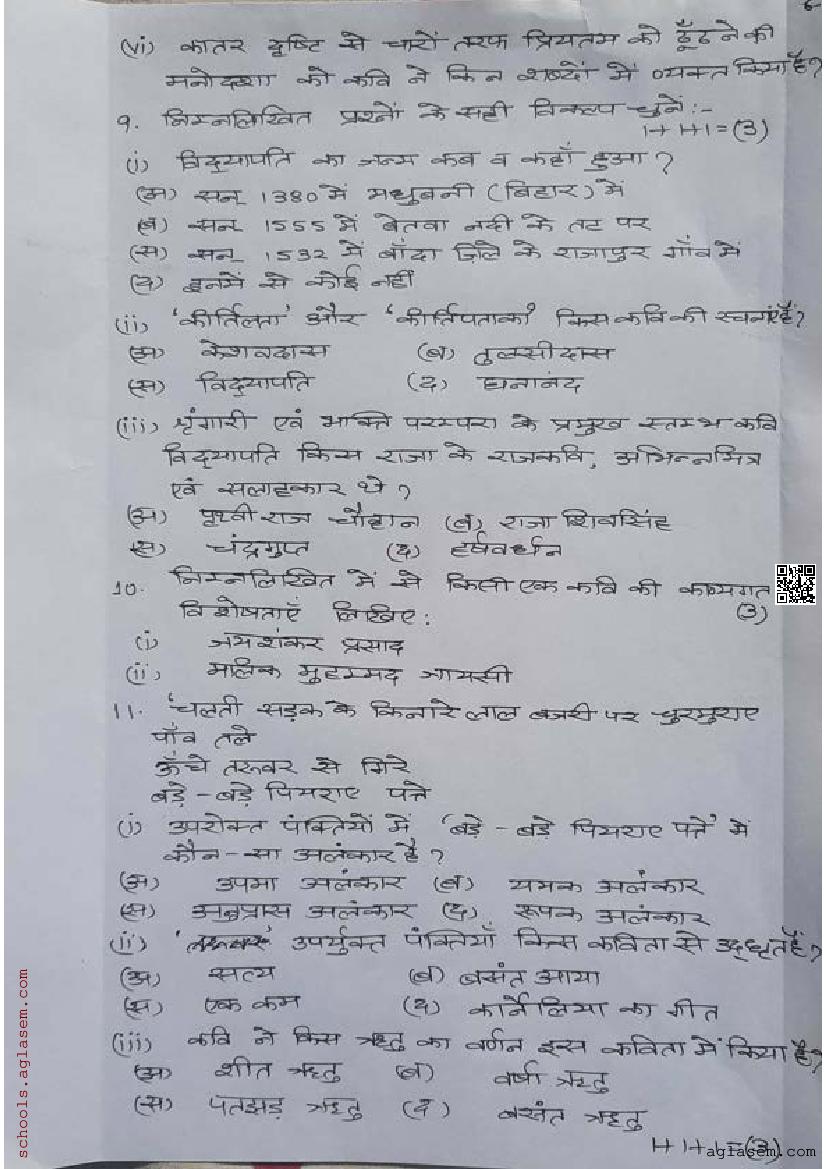 6
(vi) कातर दृष्टि से चारों तरफ प्रियतम को ढूँढने की
मनोदशा को कवि ने किन शब्दों में व्यक्त किया है?
9. निम्नलिखित प्रश्नों के सही विकल्प चुनें:-
1+1+1=(3)
(i) विद्यापति का जन्म कब व कहाँ हुआ?
(अ) सन् 1380 में मधुबनी (बिहार) में
(ब) सन् 1555 में बेतवा नदी के तट पर
(स) सन् 1532 में बाँदा ज़िले के राजापुर गाँव में
(द) इनमें से कोई नहीं
(ii) 'कीर्तिलता' और 'कीर्तिपताका' किस कवि की रचनाएं हैं?
(अ) केशवदास (ब) तुलसीदास
(स) विद्यापति (द) घनानंद
(iii) शृंगारी एवं भक्ति परम्परा के प्रमुख स्तम्भ कवि
विद्यापति किस राजा के राजकवि, अभिन्नमित्र
एवं सलाहकार थे?
(अ) पृथ्वीराज चौहान (ब) राजा शिवसिंह
(स) चंद्रगुप्त (द) हर्षवर्धन
10. निम्नलिखित में से किसी एक कवि की काव्यगत
विशेषताएँ लिखिए: (3)
(i) जयशंकर प्रसाद
(ii) मलिक मुहम्मद जायसी
11. 'चलती सड़क के किनारे लाल बजरी पर चुरमुराए
पाँव तले
ऊँचे तरुवर से गिरे
बड़े-बड़े पियराए पत्ते
(i) उपरोक्त पंक्तियों में 'बड़े-बड़े पियराए पत्ते' में
कौन-सा अलंकार है?
(अ) उपमा अलंकार (ब) यमक अलंकार
(स) अनुप्रास अलंकार (द) रूपक अलंकार
(ii) उपर्युक्त पंक्तियाँ किस कविता से उद्धृत हैं?
(अ) सत्य (ब) बसंत आया
(स) एक कम (द) कार्नेलिया का गीत
(iii) कवि ने किस ऋतु का वर्णन इस कविता में किया है?
(अ) शीत ऋतु (ब) वर्षा ऋतु
(स) पतझड़ ऋतु (द) बसंत ऋतु
1+1+1=(3)
schools.aglasem.com
aglasem.com